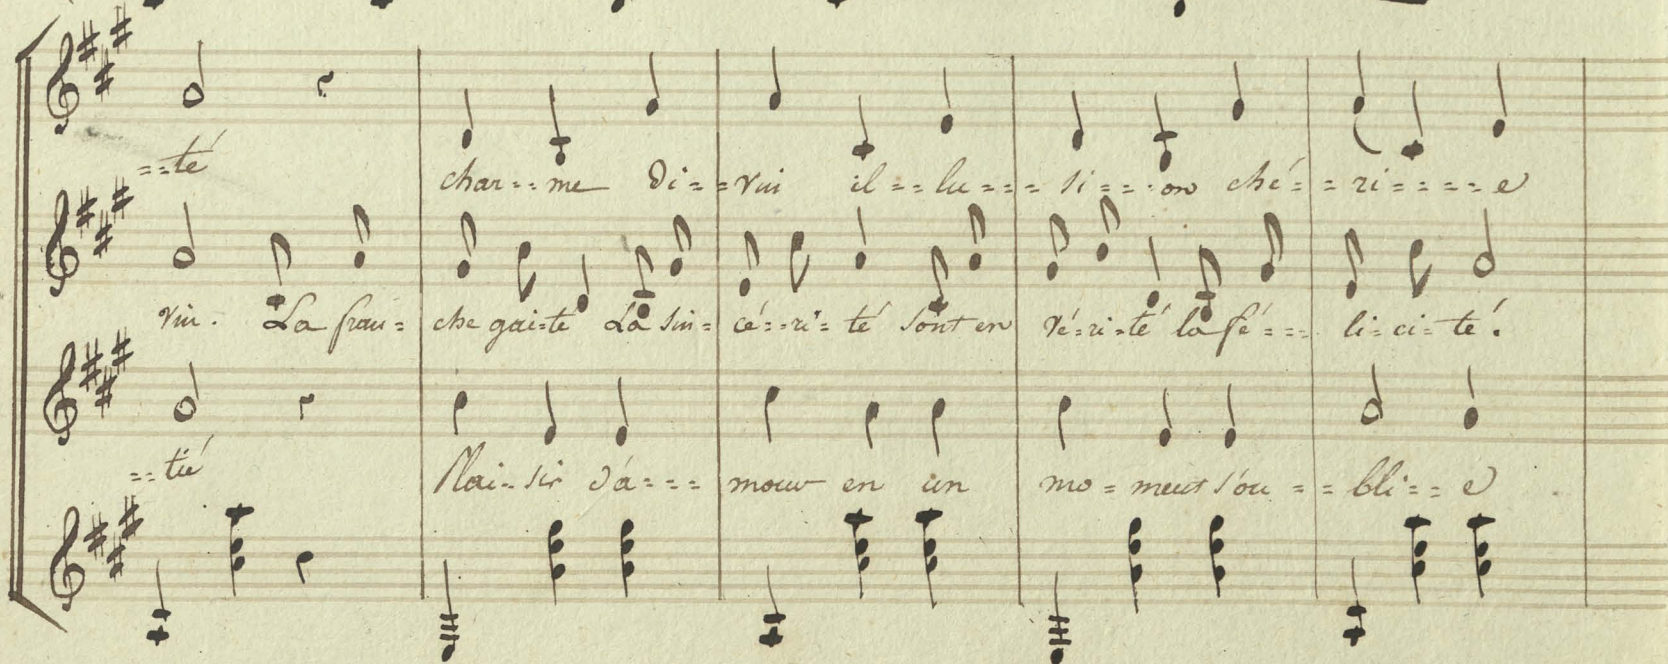 ==té charme - - me di = = vin il = = lu = = = si = = on ché = = ri = = = = e
vin. La fran = che gai = té La sin = cé = = ri = té sont en vé = ri = té la fé = = = li = ci = té.
== tié Plai = sir d'a = = = mour en un mo = ment s'ou = = bli = = e